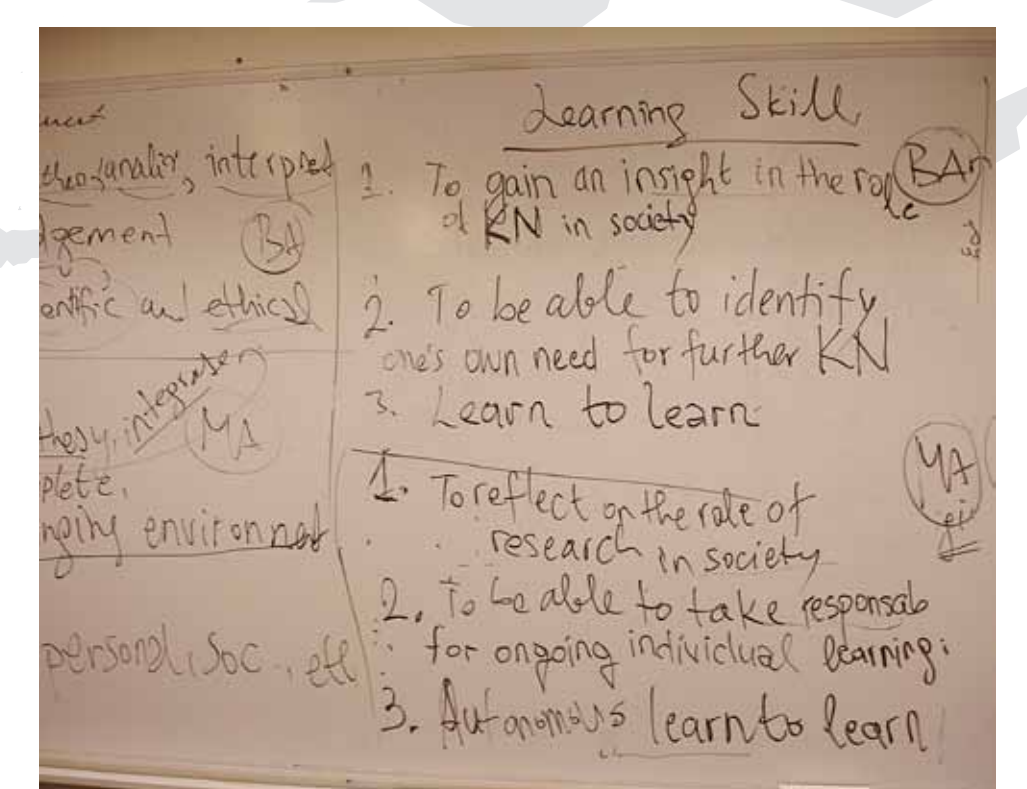 interpred
BA
and ethical
integrate
MA
plete,
environnat
personal, Soc., etc
Learning Skill
1. To gain an insight in the role
of KN in society
BA
2. To be able to identify
one's own need for further KN
3. Learn to learn
1. To reflect on the role of
research in society
MA
2. To be able to take responsab
for ongoing individual learning:
3. Autonomous learn to learn